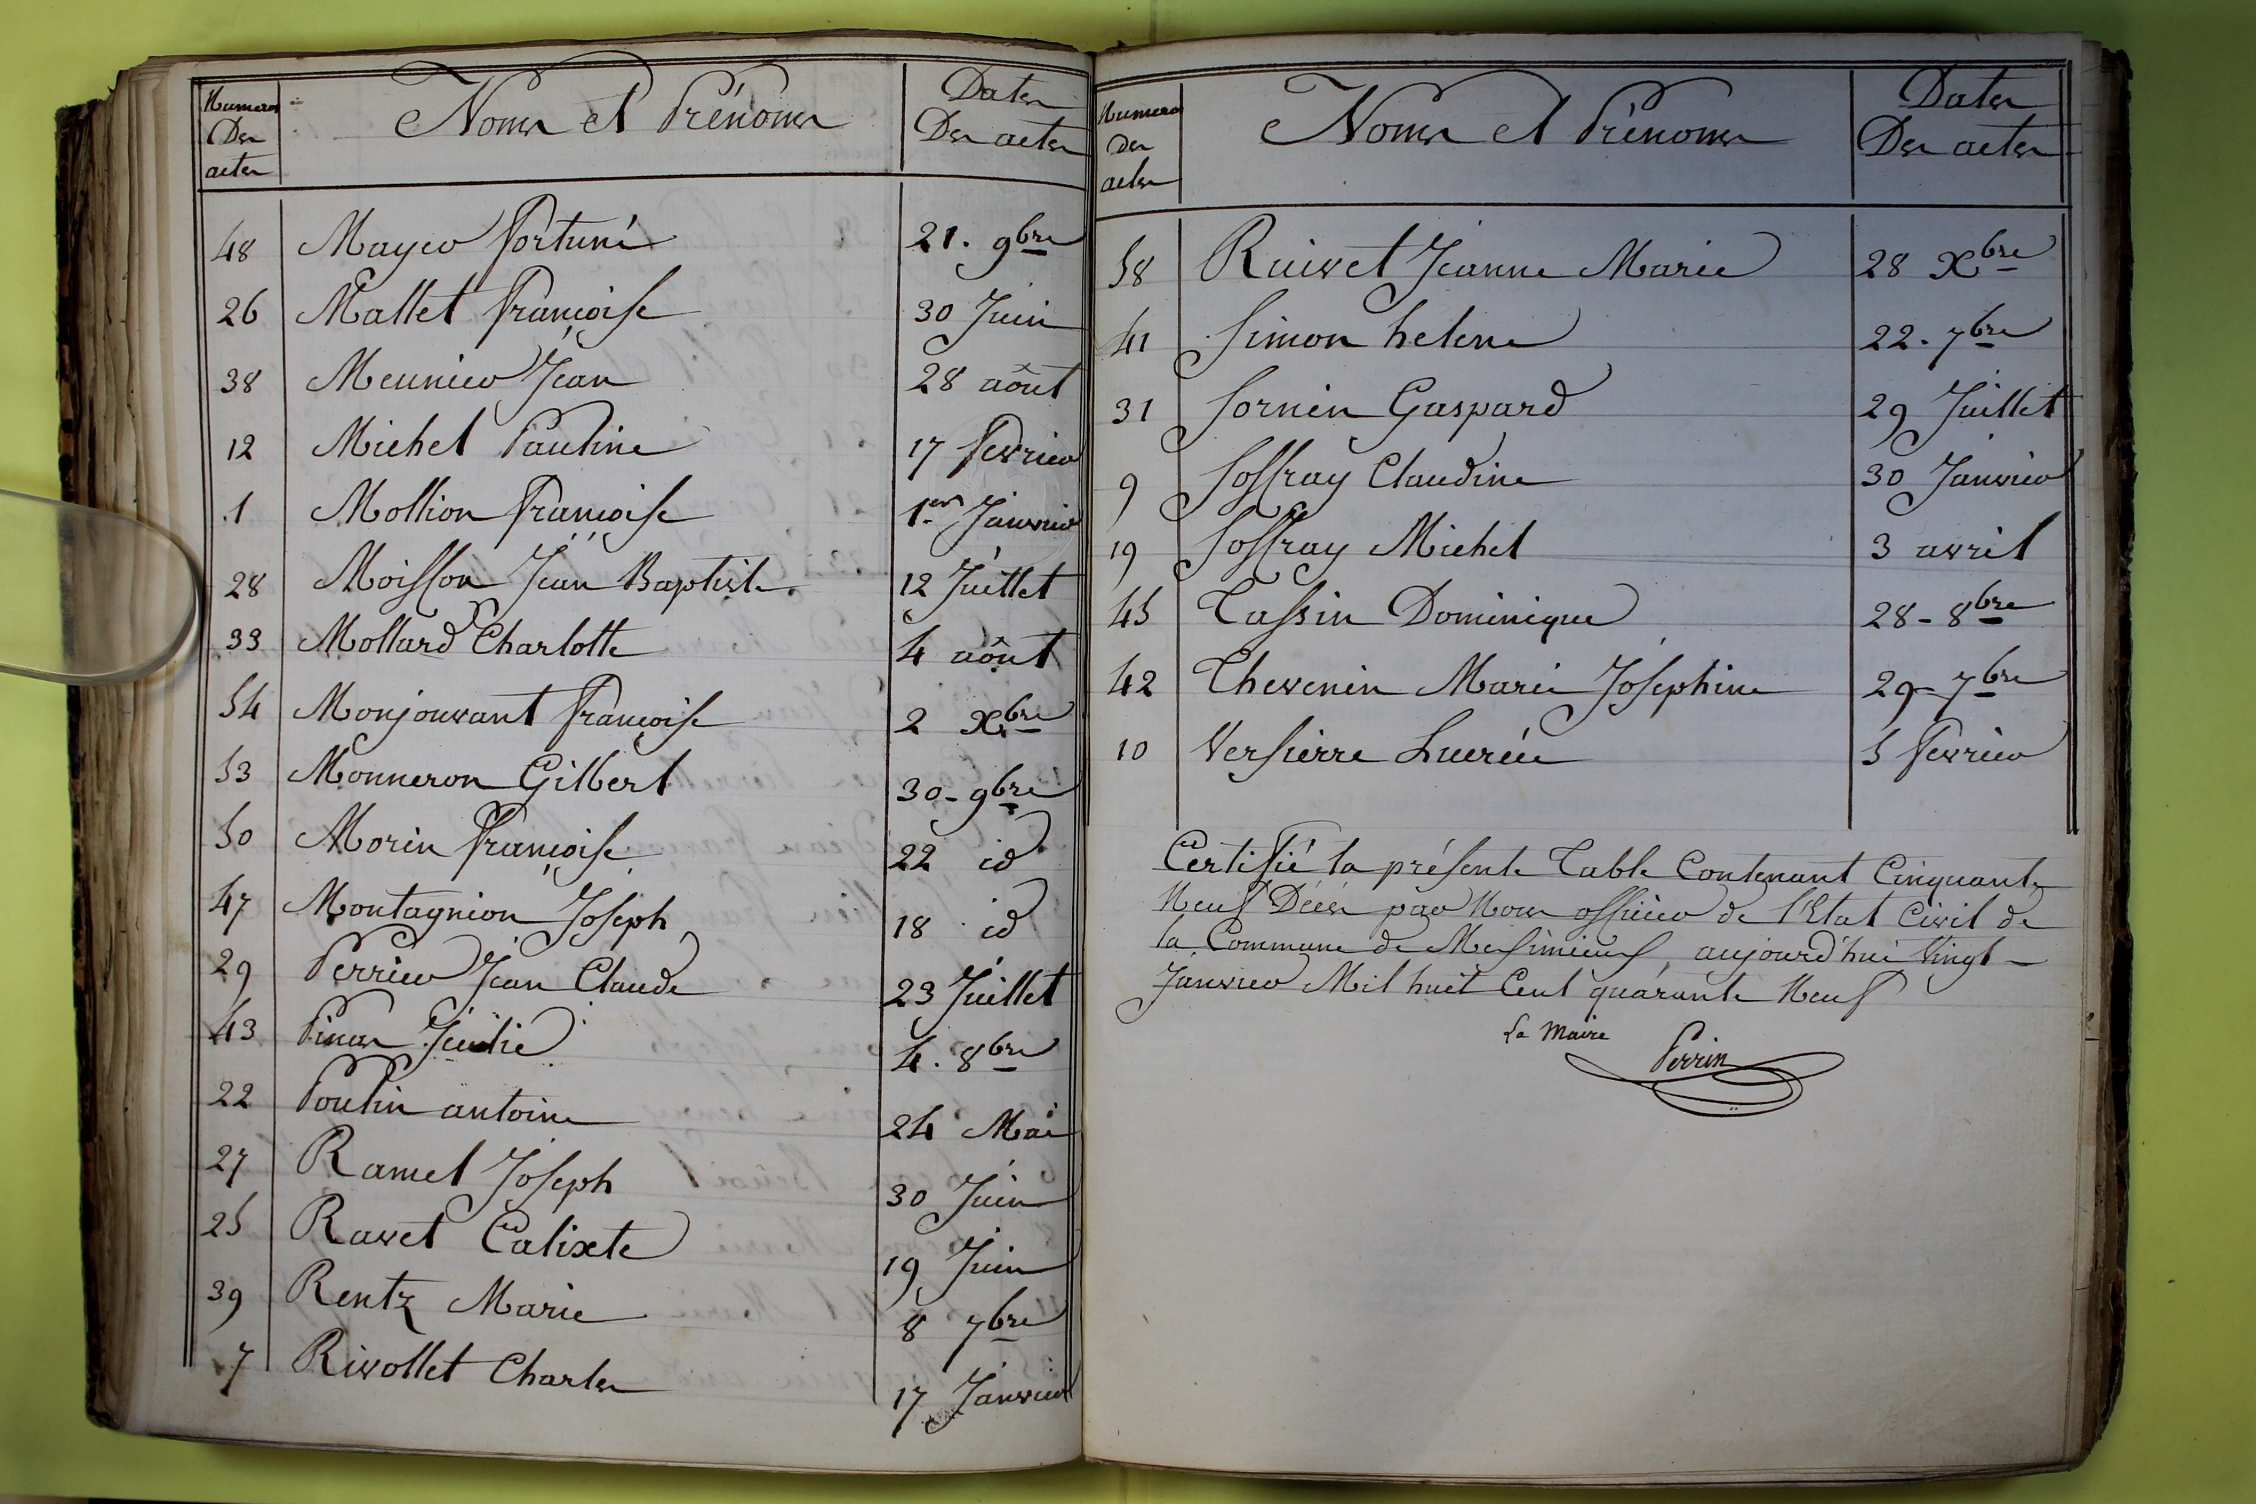 Numeros
Des
actes
Noms et Prénoms
Dates
Des actes
48 Mayer fortuné 21. 9bre
26 Mallet françoise 30 Juin
38 Meunier Jean 28 aôut
12 Michel Pauline 17 fevrier
1 Mollion françoise 1er Janvier
28 Moisson Jean Baptiste 12 Juillet
33 Mollard Charlotte 4 aôut
54 Monjouvant françoise 2 Xbre
53 Monneron Gilbert 30 - 9bre
50 Morin françoise 22 id
47 Montagnion Joseph 18 id
29 Perrier Jean Claude 23 Juillet
43 Pinos 4. 8bre
22 Poulin antoine 24 Mai
27 Ramel Joseph 30 Juin
25 Ravet Calixte 19 Juin
39 Rentz Marie 8 7bre
7 Rivollet Charles 17 Janvier
Numeros
des
actes
Noms et Prénoms
Dates
Des actes
58 Ruivet Jeanne Marie 28 Xbre
41 Simon helene 22. 7bre
31 Sornin Gaspard 29 Juillet
9 Soffray Claudine 30 Janvier
19 Soffray Michel 3 avril
45 Tassin Dominique 28 - 8bre
42 Thevenin Marie Josephine 29 - 7bre
10 Versierre Lucrèce 5 fevrier
Certifié la présente Table Contenant Cinquante
Neuf Décès par Nous officier de l'Etat Civil de
la Commune de Meximieux, aujourd'hui Vingt
Janvier Mil huit Cent quarante Neuf
Le Maire
Perrin